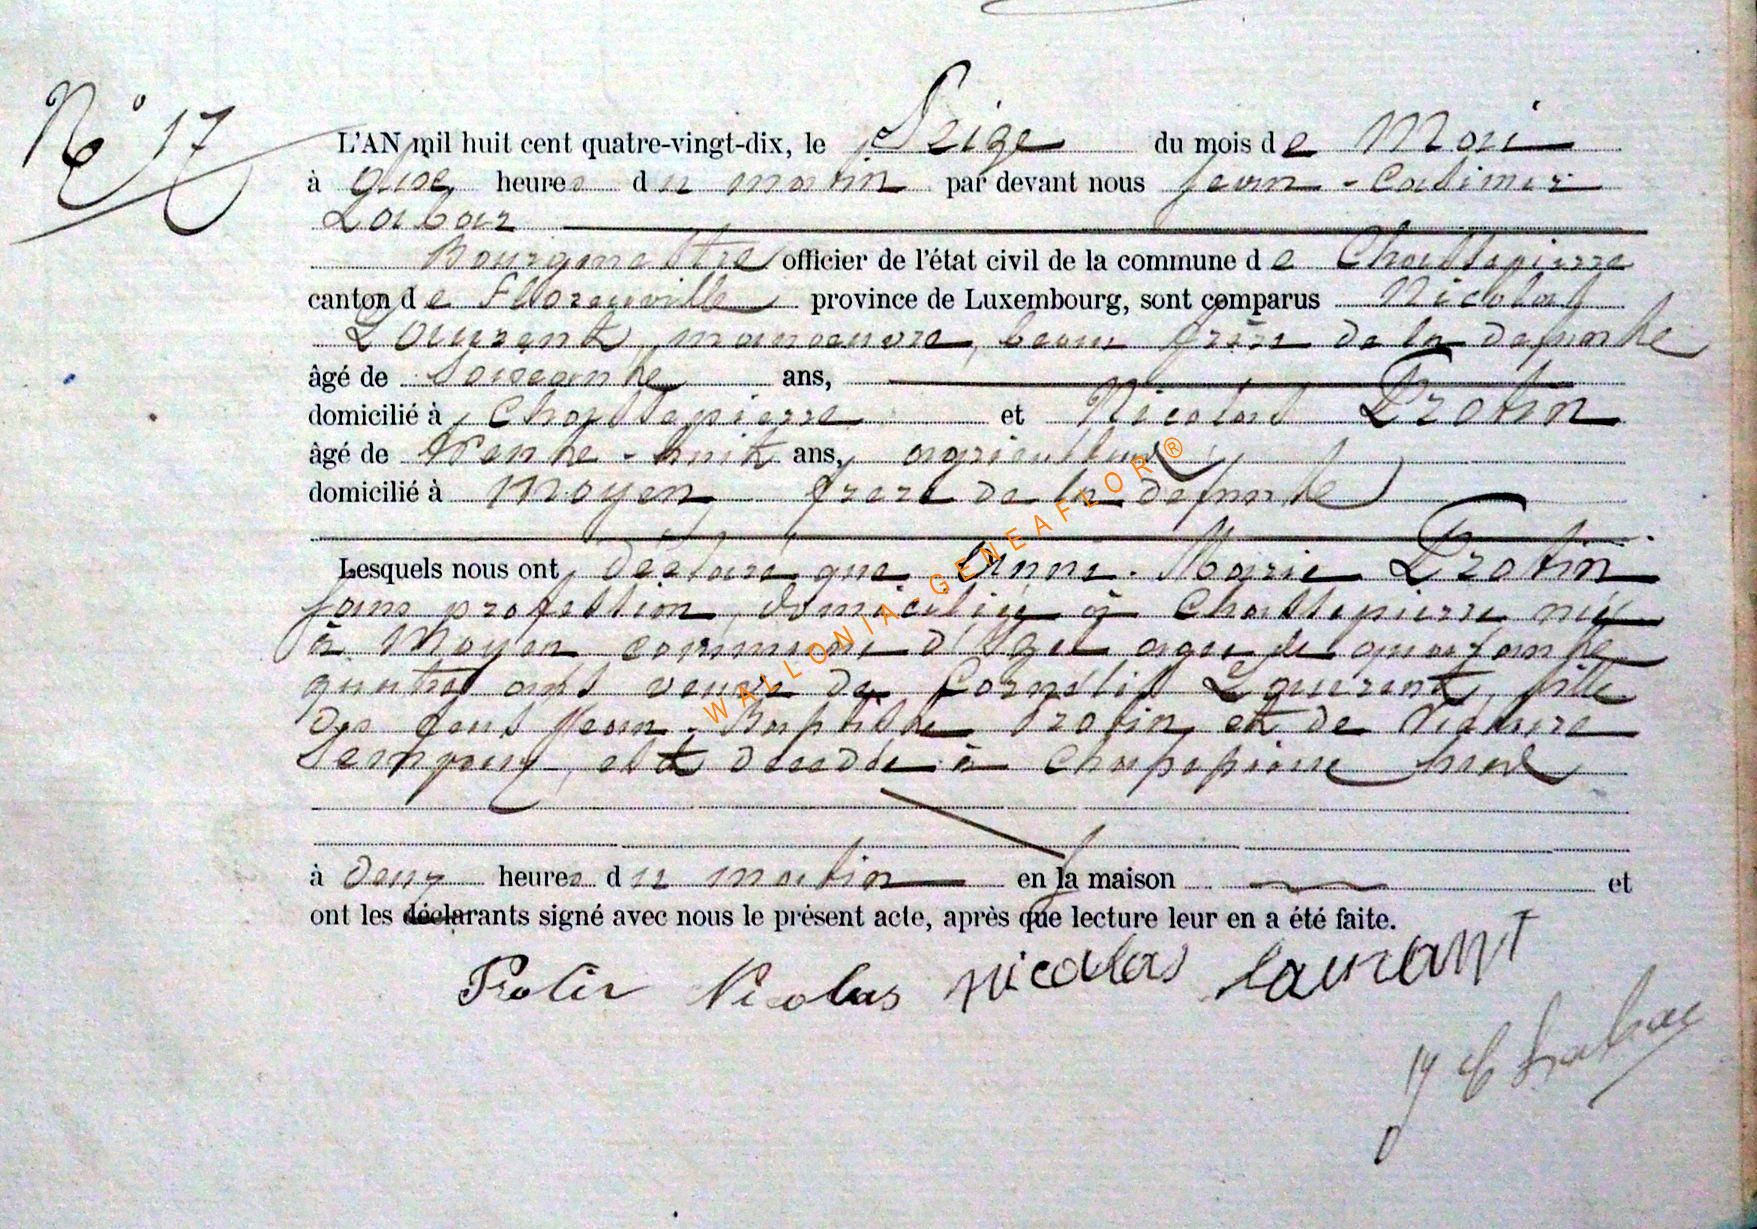 N° 17
L'AN mil huit cent quatre-vingt-dix, le Seize du mois de Mai
à onze heures du matin par devant nous Jean-Casimir
Labar
Bourgmestre officier de l'état civil de la commune de Chassepierre
canton de Florenville province de Luxembourg, sont comparus Nicolas
Laurent, manoeuvre, beau frère de la defunte
âgé de Soixante ans,
domicilié à Chassepierre et Nicolas Protin
âgé de trente-huit ans, agriculteur
domicilié à Moyen frere de la defunte
Lesquels nous ont déclaré que Anne-Marie Protin
sans profession, domiciliée à Chassepierre née
à Moyen commune d'Izel agee de quarante
quatre ans veuve de Cornélis Laurent, fille
des Jean-Baptiste Protin et de
est decedée à hier
à deux heures du matin en la maison et
ont les déclarants signé avec nous le présent acte, après que lecture leur en a été faite.
Protin Nicolas nicolas laurant
J C Labar
WALLONIA-GENEAFLOR®